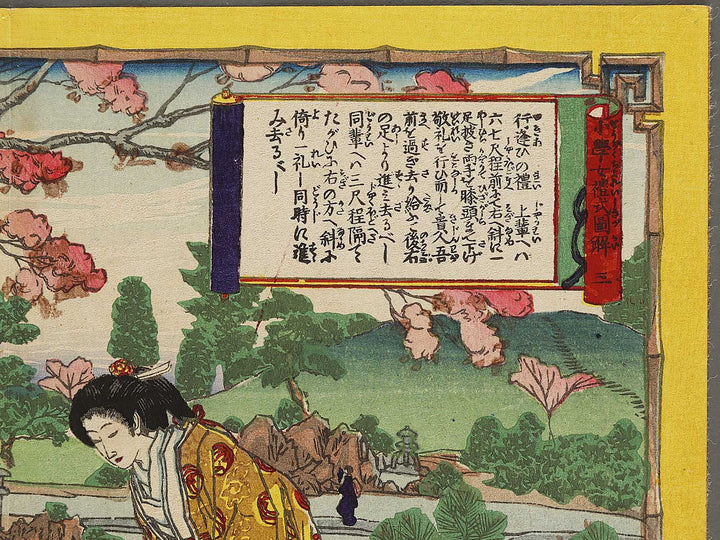 小學女禮式圖解 三
行逢ひの禮 上輩へハ
六七尺程前にて右へ斜に一
足披き両手を膝頭まで下げ
敬礼を行ひ而して貴人吾
前を過ぎ去り給ふ後右
の足より進ミ去るべし
同輩へハ三尺程隔て
たがひに右の方へ斜に
倚り一礼し同時に進
み去るべし